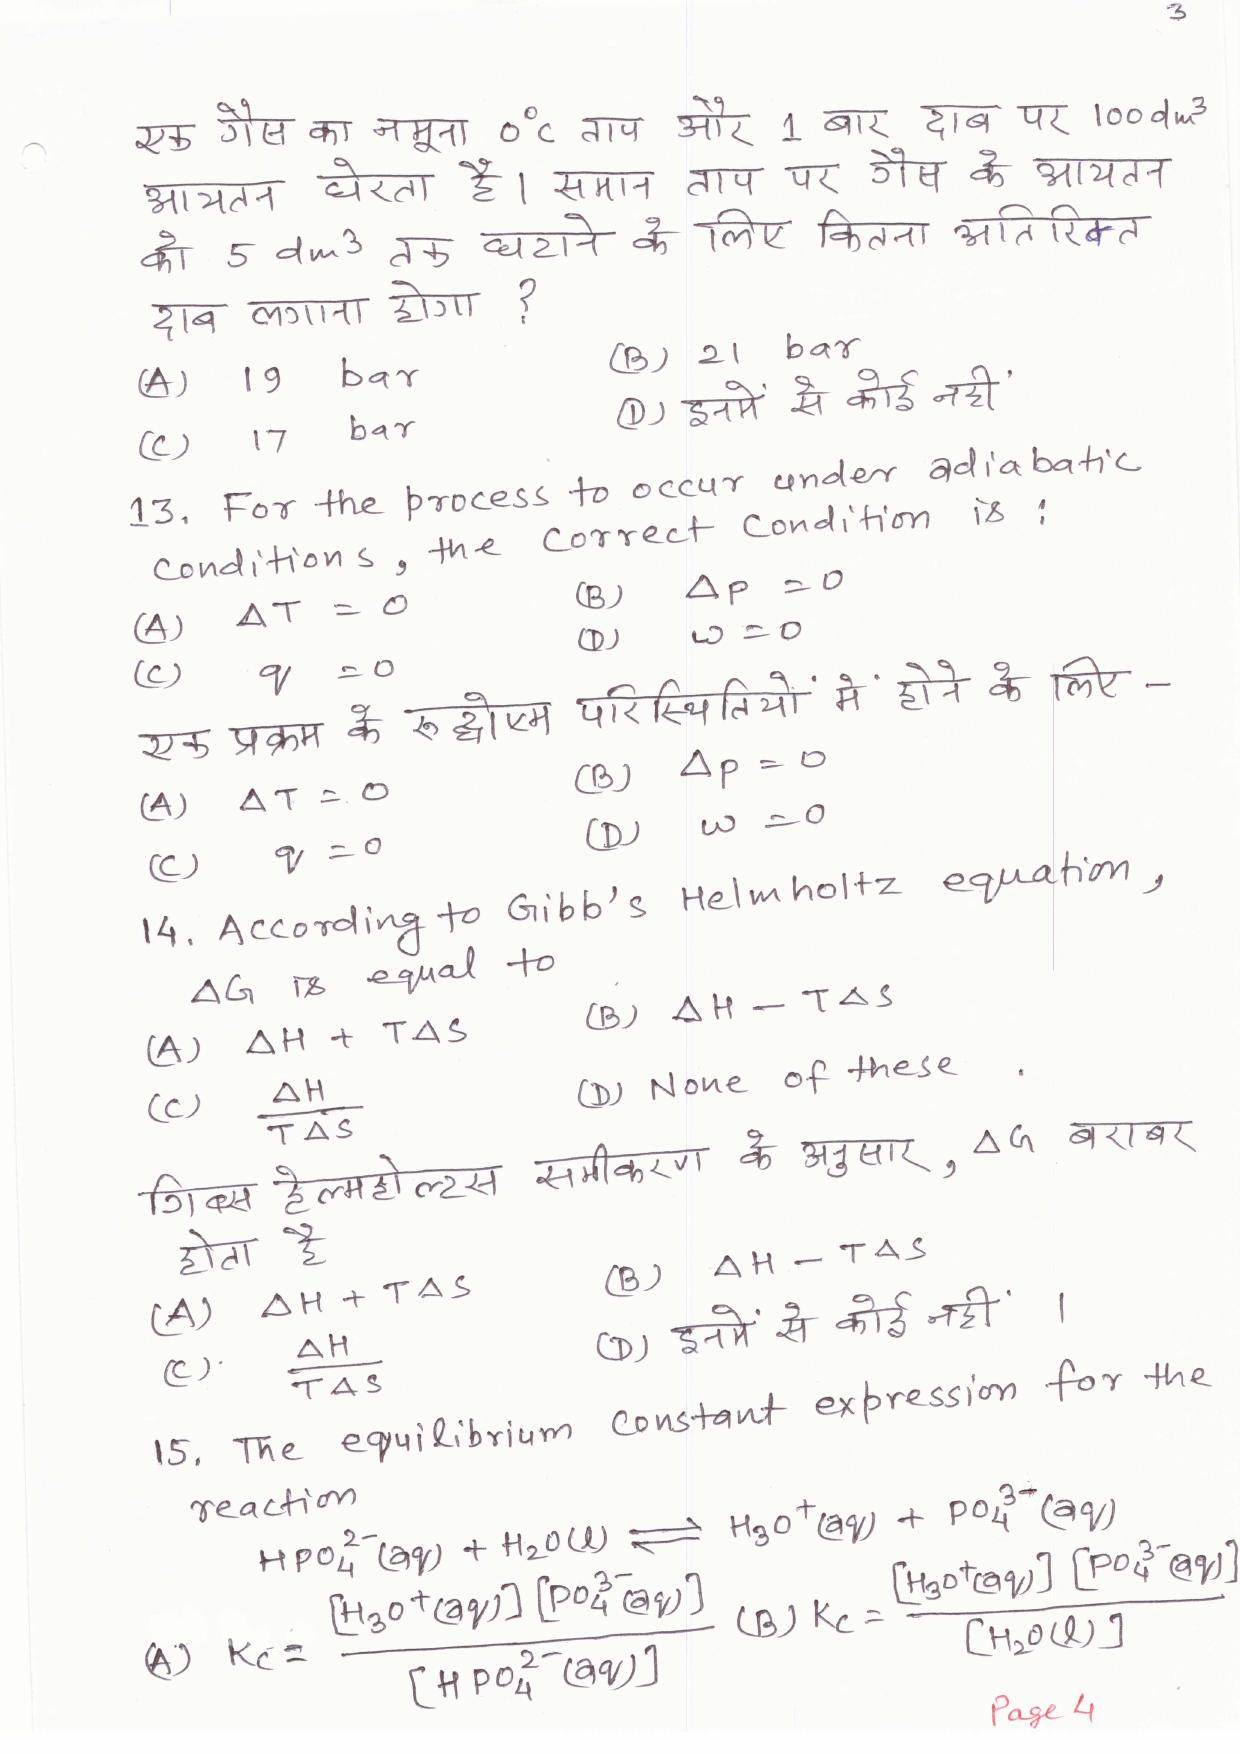 3
एक गैस का नमूना 0°C ताप और 1 बार दाब पर 100 dm³
आयतन घेरता है। समान ताप पर गैस के आयतन
को 5 dm³ तक घटाने के लिए कितना अतिरिक्त
दाब लगाना होगा ?
(A) 19 bar (B) 21 bar
(C) 17 bar (D) इनमें से कोई नहीं
13. For the process to occur under adiabatic
conditions, the correct condition is :
(A) ΔT = 0 (B) Δp = 0
(C) q = 0 (D) w = 0
एक प्रक्रम के रूद्धोष्म परिस्थितियों में होने के लिए –
(A) ΔT = 0 (B) Δp = 0
(C) q = 0 (D) w = 0
14. According to Gibb's Helmholtz equation,
ΔG is equal to
(A) ΔH + TΔS (B) ΔH – TΔS
(C) ΔH / TΔS (D) None of these .
गिब्स हेल्महोल्टस समीकरण के अनुसार, ΔG बराबर
होता है
(A) ΔH + TΔS (B) ΔH – TΔS
(C) ΔH / TΔS (D) इनमें से कोई नहीं ।
15. The equilibrium constant expression for the
reaction
HPO₄²⁻(aq) + H₂O(l) ⇌ H₃O⁺(aq) + PO₄³⁻(aq)
(A) Kc = [H₃O⁺(aq)] [PO₄³⁻(aq)] / [HPO₄²⁻(aq)] (B) Kc = [H₃O⁺(aq)] [PO₄³⁻(aq)] / [H₂O(l)]
Page 4